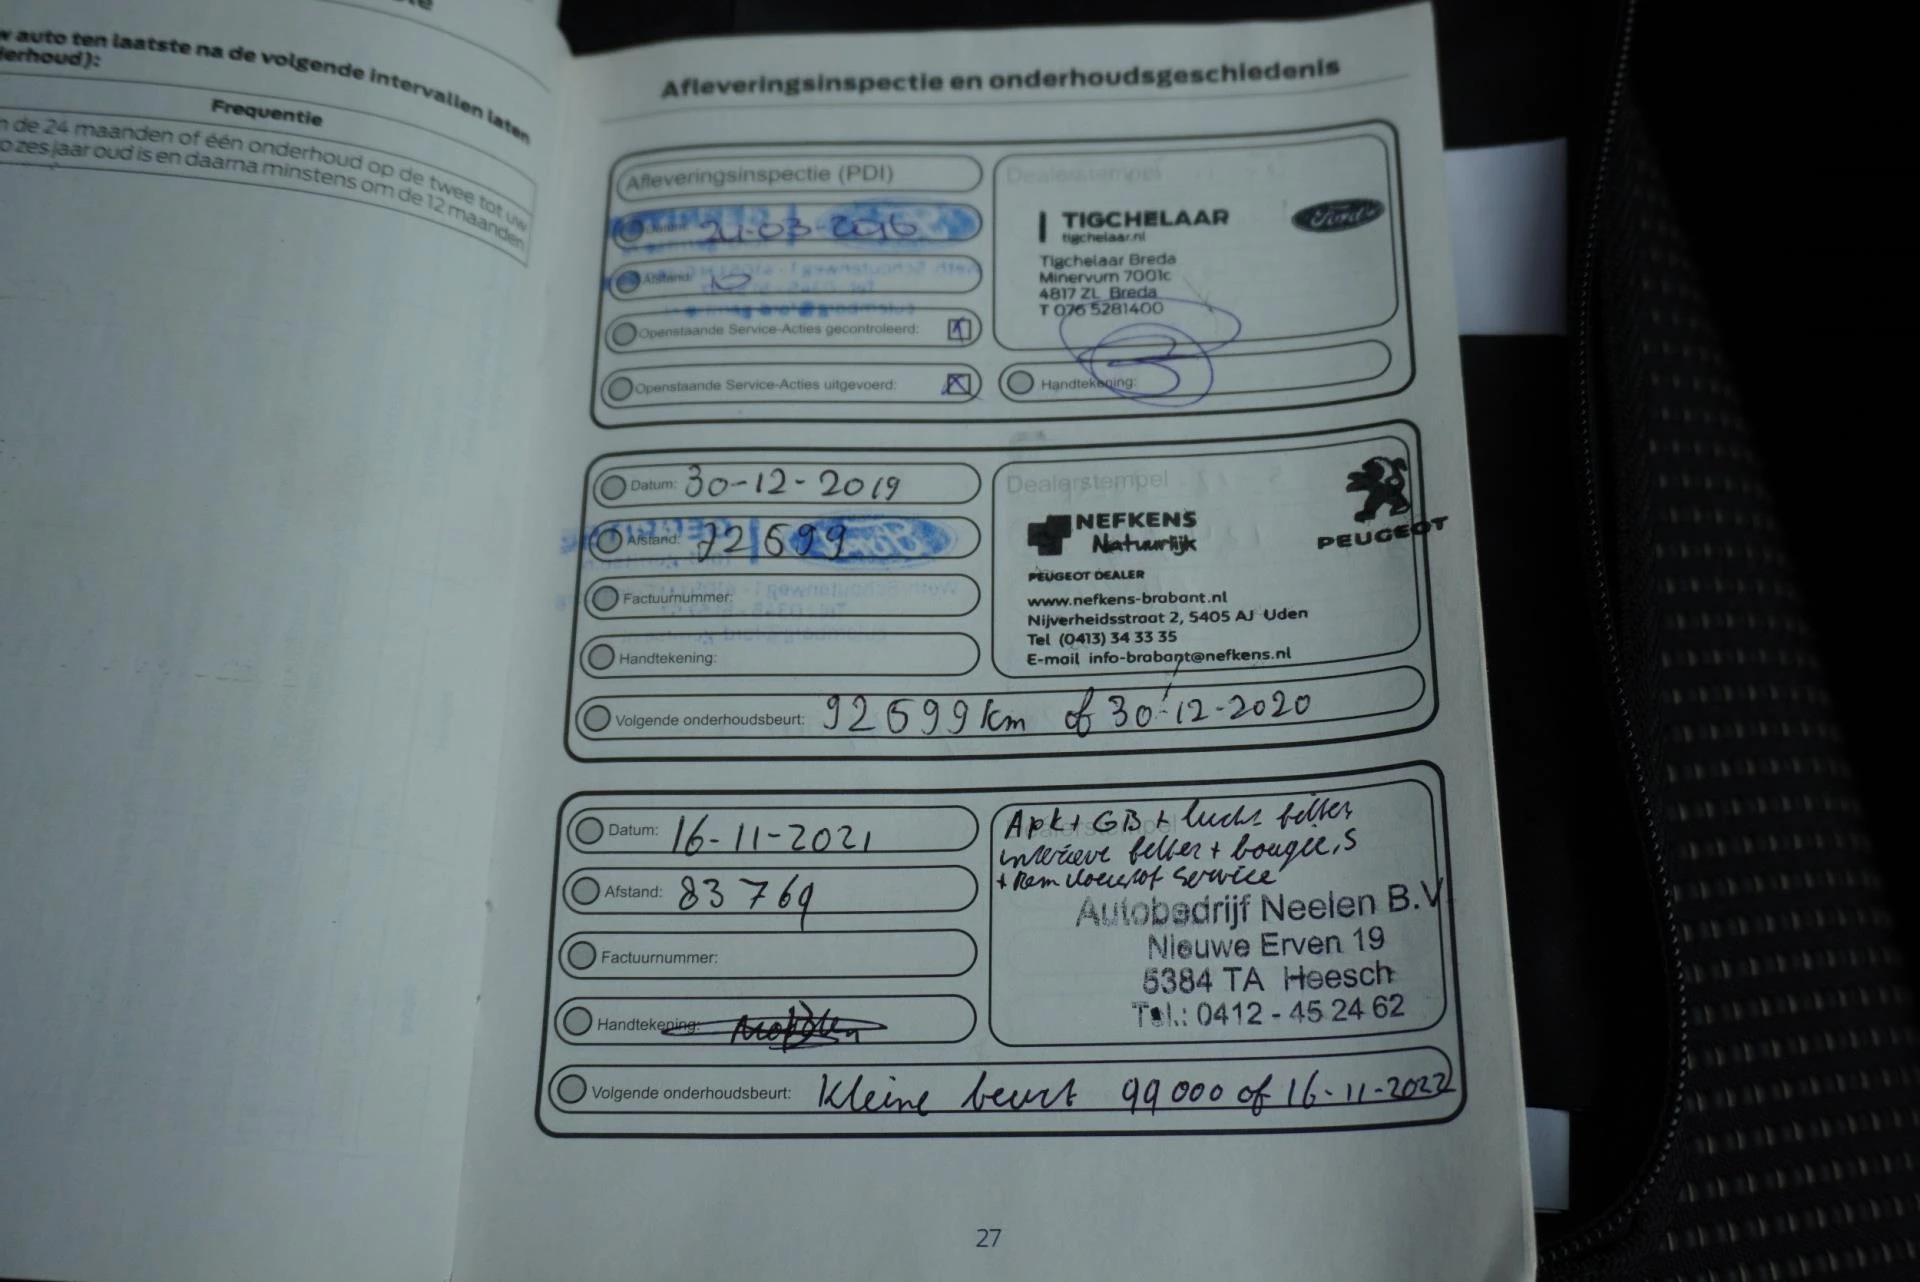 w auto ten laatste na de volgende intervallen laten
derhoud):
Frequentie
de 24 maanden of één onderhoud op de twee tot uw
zes jaar oud is en daarna minstens om de 12 maanden
Afleveringsinspectie en onderhoudsgeschiedenis
Afleveringsinspectie (PDI)
03-2016
Afstand: 10
Openstaande Service-Acties gecontroleerd:
Openstaande Service-Acties uitgevoerd:
Dealerstempel
TIGCHELAAR
tigchelaar.nl
Ford
Tigchelaar Breda
Minervum 7001c
4817 ZL Breda
T 076 5281400
Handtekening:
Datum: 30-12-2019
Afstand: 72 699
Factuurnummer:
Handtekening:
Dealerstempel
NEFKENS
Natuurlijk
PEUGEOT
PEUGEOT DEALER
www.nefkens-brabant.nl
Nijverheidsstraat 2, 5405 AJ Uden
Tel (0413) 34 33 35
E-mail info-brabant@nefkens.nl
Volgende onderhoudsbeurt: 92 699 km of 30-12-2020
Datum: 16-11-2021
Afstand: 83 769
Factuurnummer:
Handtekening:
Apk + GB + lucht filter
interieur filter + bougie,s
+ Rem vloeistof service
Autobedrijf Neelen B.V
Nieuwe Erven 19
5384 TA Heesch
Tel.: 0412 - 45 24 62
Volgende onderhoudsbeurt: Kleine beurt 99 000 of 16-11-2022
27